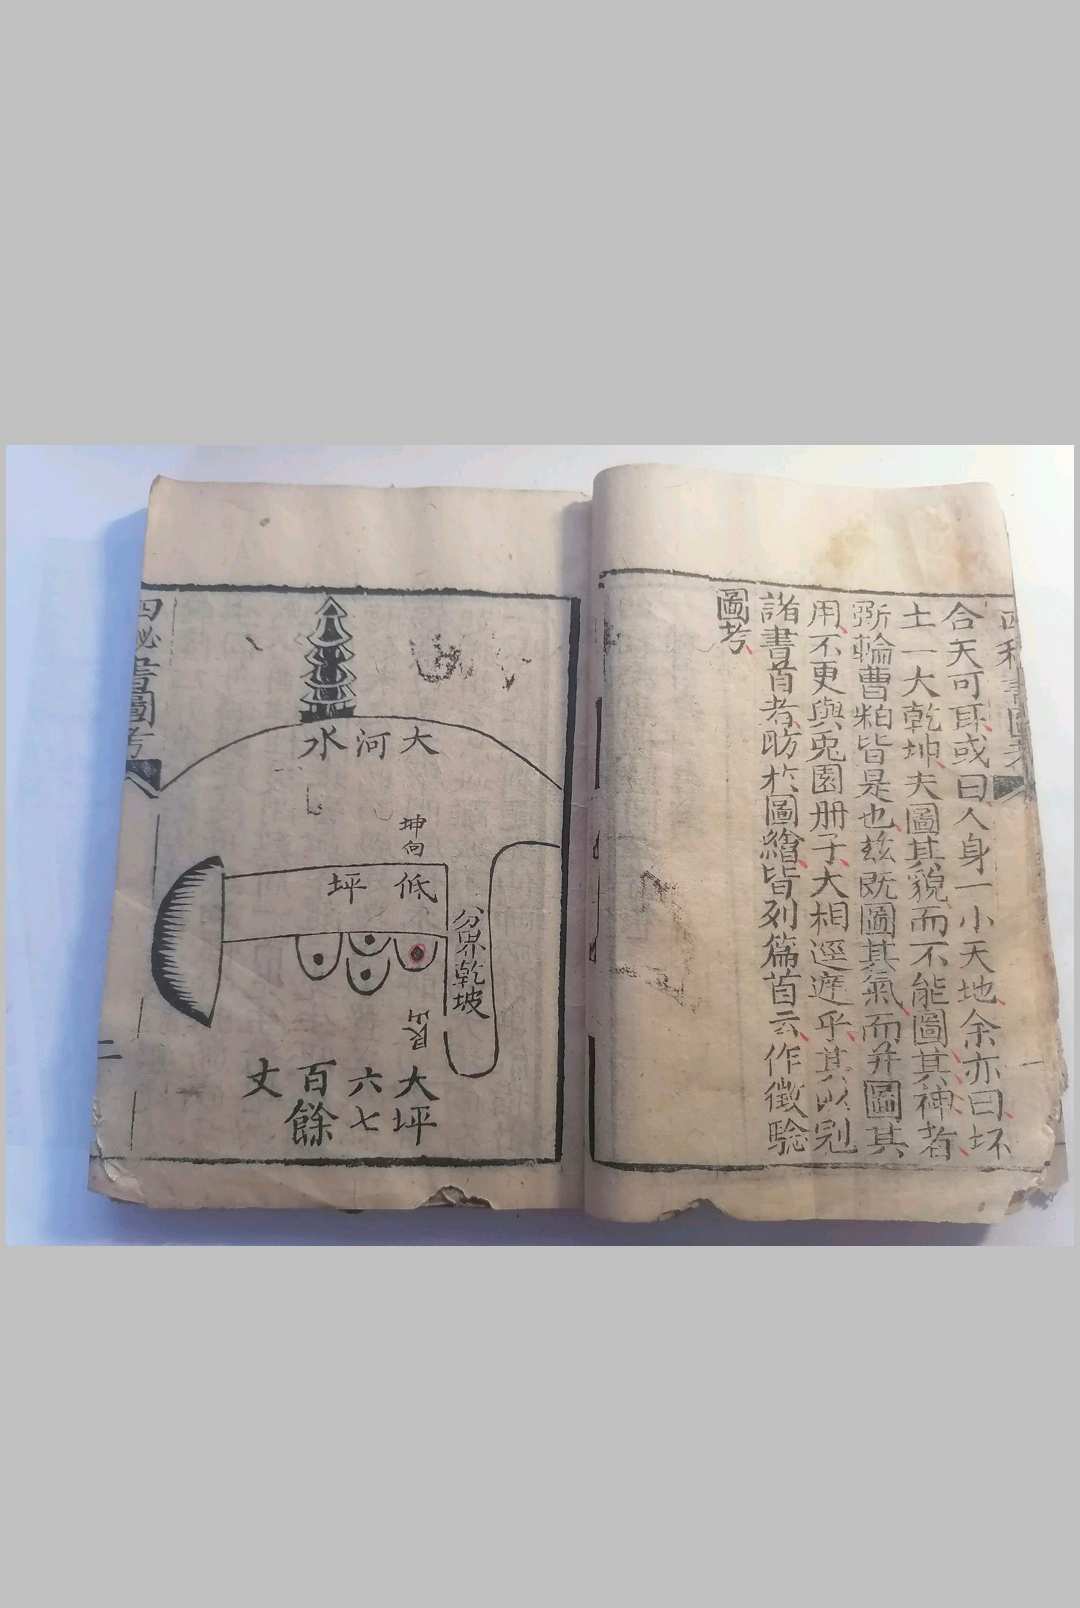 合天可耳或曰人身一小天地余亦曰坏
土一大乾坤夫圖其貌而不能圖其神者
斲輪曹粕皆是也玆旣圖其氣而并圖其
用不更與兎園册子大相逕遅乎其以冠
諸書首者昉於圖繪皆列篇首云作徵驗
圖考
一
大河水
坤向
低坪
分界乾坡
艮山
大坪
六七
百餘
丈
四秘書圖考
二